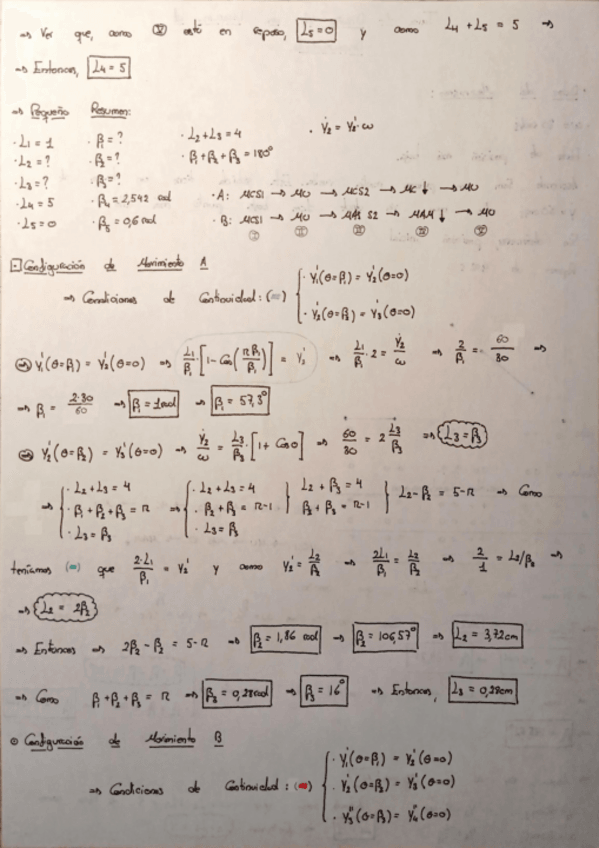 ⇒ Ver que, como Ⅴ está en reposo, L5=0 y como L4 + L5 = 5 ⇒
⇒ Entonces, L4 = 5
⇒ Pequeño Resumen:
· L1 = 1 · β1 = ? · L2 + L3 = 4 · Ẏ2 = Y2'·ω
· L2 = ? · β2 = ? · β1 + β2 + β3 = 180°
· L3 = ? · β3 = ?
· L4 = 5 · β4 = 2,542 rad · A: MCS1 → MU → MCS2 → MC↓ → MU
· L5 = 0 · β5 = 0,6 rad · B: MCS1 → MU → MAS2 → MAM↓ → MU
Ⅰ Ⅱ Ⅲ Ⅳ Ⅴ
Configuración de Movimiento A
⇒ Condiciones de Continuidad: (=) { · Y1'(θ=β1) = Y2'(θ=0)
· Y2'(θ=β2) = Y3'(θ=0)
⇒ Y1'(θ=β1) = Y2'(θ=0) ⇒ L1/β1·[1 - Cos(πβ1/β1)] = Y2' ⇒ L1/β1·2 = Ẏ2/ω ⇒ 2/β1 = 60/80 ⇒
⇒ β1 = 2·80/60 ⇒ β1 = 1 rad ⇒ β1 = 57,3°
⇒ Y2'(θ=β2) = Y3'(θ=0) ⇒ Ẏ2/ω = L3/β3·[1 + Cos0] ⇒ 60/80 = 2 L3/β3 ⇒ L3 = β3
⇒ { · L2 + L3 = 4 ⇒ { · L2 + L3 = 4 } L2 + β3 = 4 } L2 - β2 = 5 - π ⇒ Como
· β1 + β2 + β3 = π · β2 + β3 = π - 1 β2 + β3 = π - 1
· L3 = β3 · L3 = β3
teníamos (=) que 2·L1/β1 = Y2' y como Y2' = L2/β2 ⇒ 2L1/β1 = L2/β2 ⇒ 2/1 = L2/β2 ⇒
⇒ L2 = 2β2
⇒ Entonces ⇒ 2β2 - β2 = 5 - π ⇒ β2 = 1,86 rad ⇒ β2 = 106,57° ⇒ L2 = 3,72cm
⇒ Como β1 + β2 + β3 = π ⇒ β3 = 0,28rad ⇒ β3 = 16° ⇒ Entonces, L3 = 0,28cm
Configuración de Movimiento B
⇒ Condiciones de Continuidad: (=) { · Y1'(θ=β1) = Y2'(θ=0)
· Y2'(θ=β2) = Y3'(θ=0)
· Y3''(θ=β3) = Y4''(θ=0)